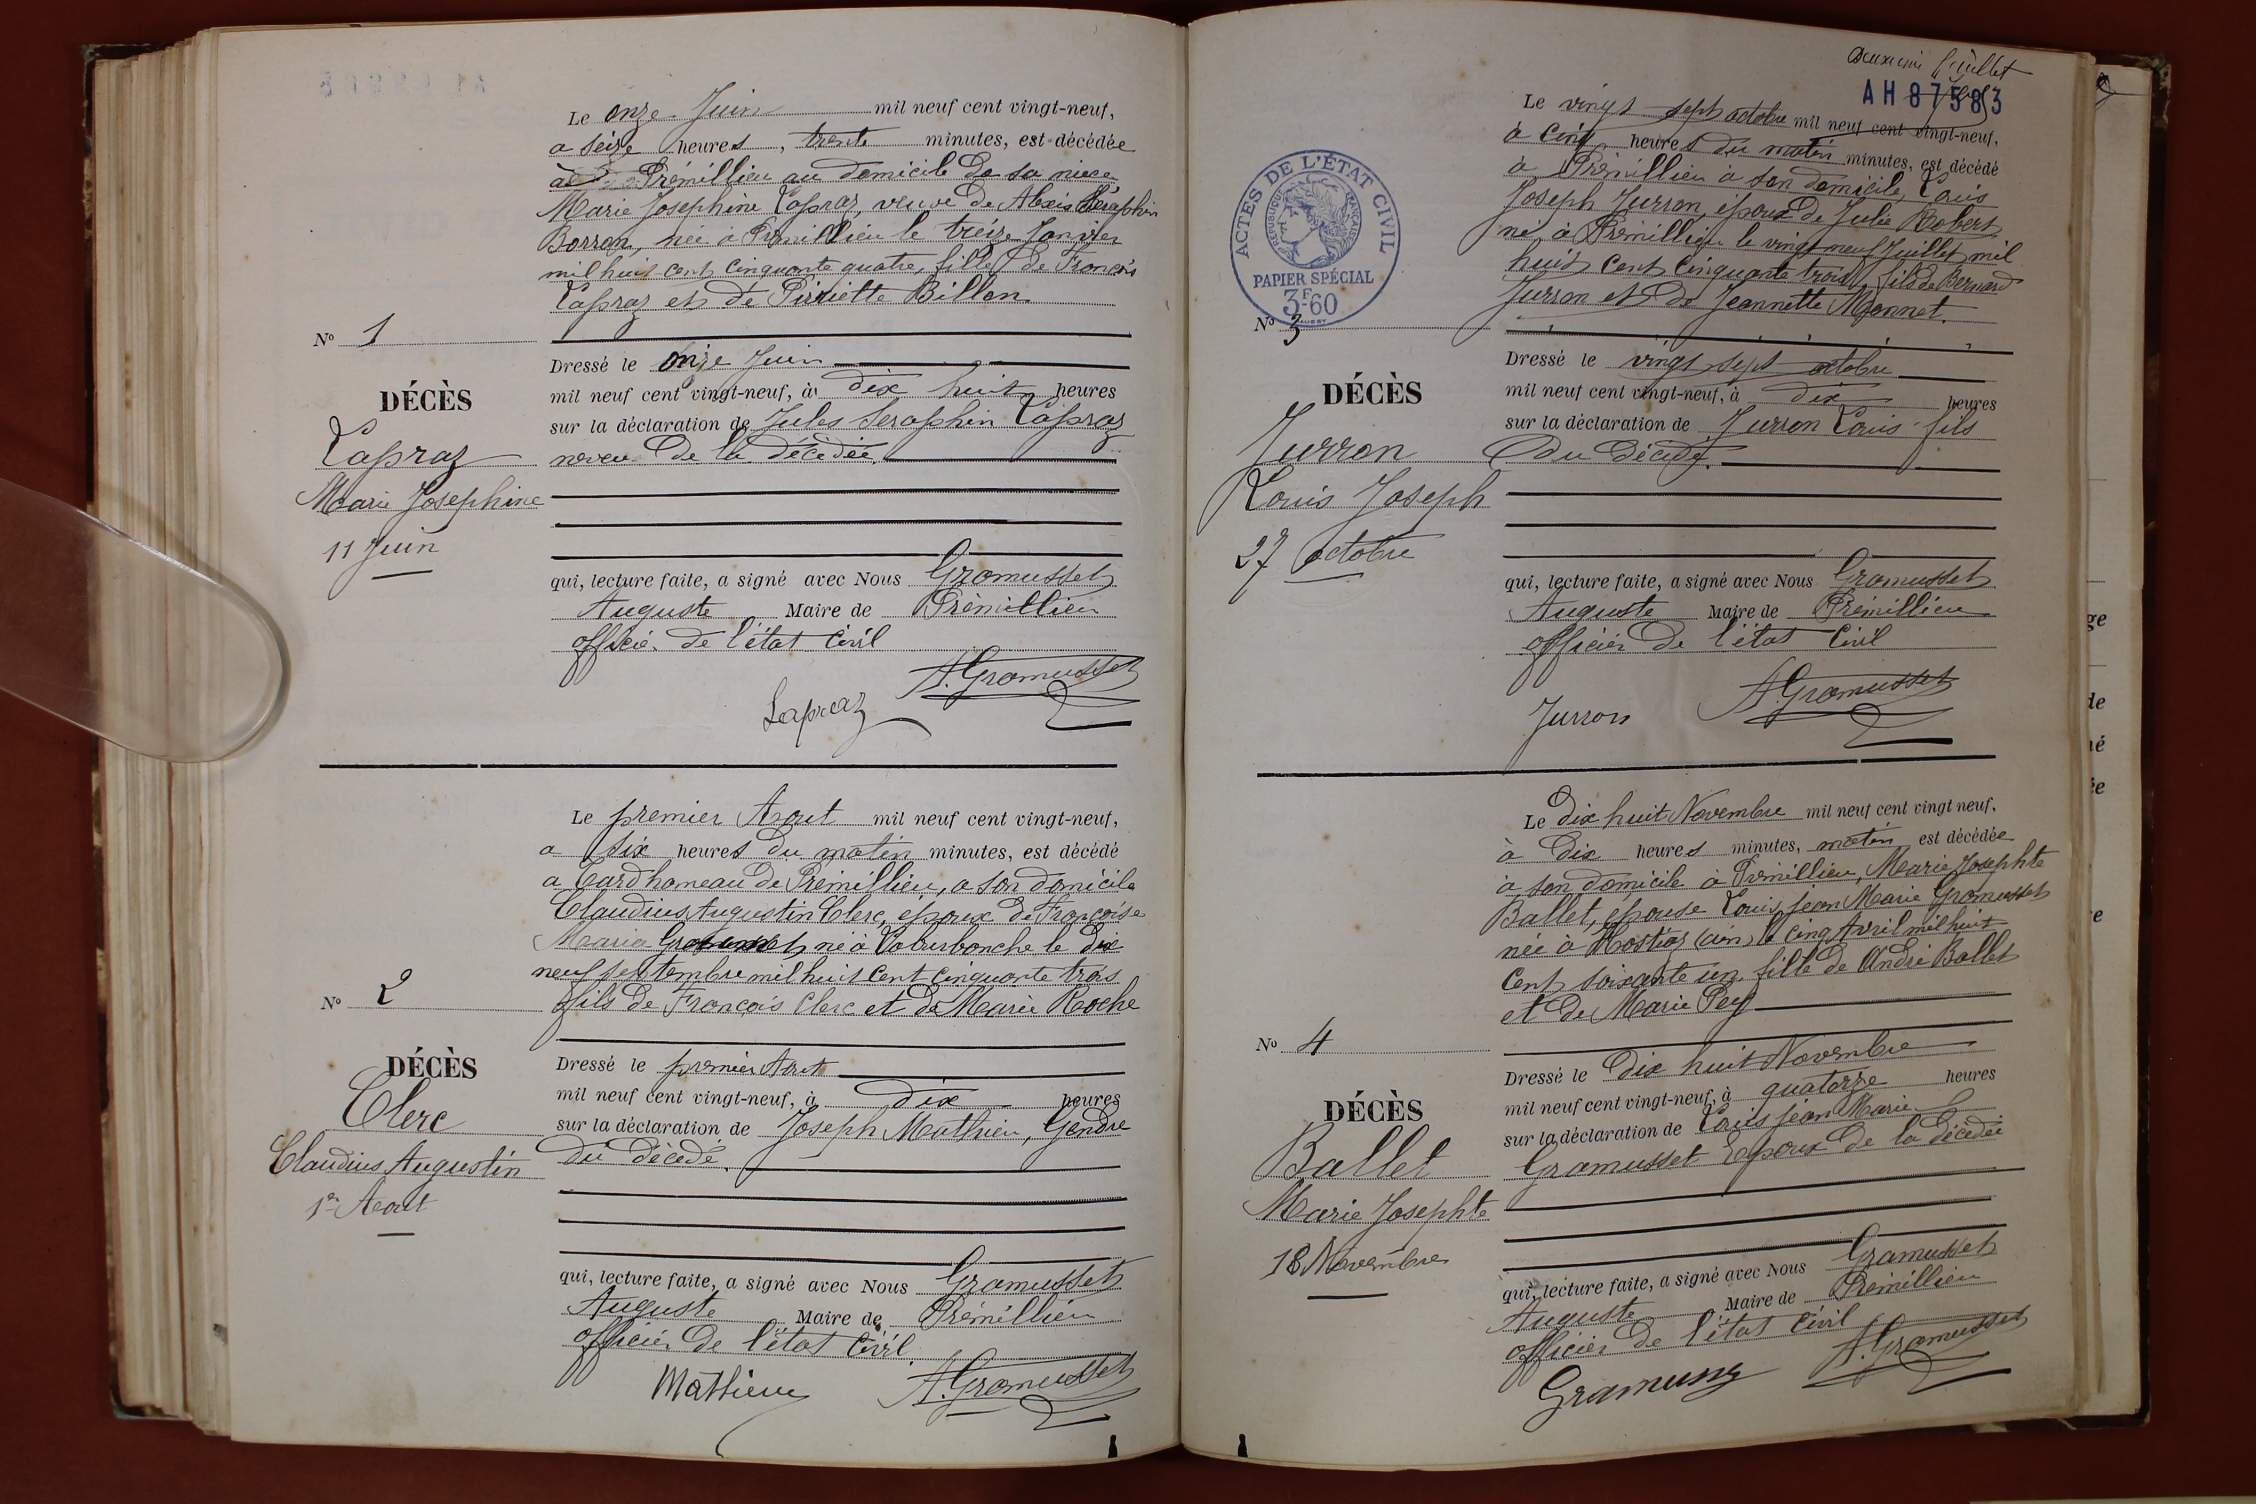 Le onze Juin mil neuf cent vingt-neuf,
a seize heures, trente minutes, est décédée
à Prémillieu au domicile de sa niece
Marie Josephine Lapraz, veuve de Alexis Séraphin
Borron, née à Prémillieu le treize Janvier
mil huit cent cinquante quatre, fille de François
Lapraz et de Pierriette Billon
No 1
DÉCÈS
Lapraz
Marie Josephine
11 Juin
Dressé le onze Juin
mil neuf cent vingt-neuf, à dix huit heures
sur la déclaration de Jules Seraphin Lapraz
neveu de la décédée.
qui, lecture faite, a signé avec Nous Gramusset
Auguste Maire de Prémillieu
officier de l'état civil
Lapraz A. Gramusset
Le premier Aout mil neuf cent vingt-neuf,
a six heures du matin minutes, est décédé
a hameau de Prémillieu, a son domicile
Claudius Augustin Clerc, époux de Françoise
Marie Gramusset né à le dix
neuf septembre mil huit cent cinquante trois
fils de François Clerc et de Marie Roche
No 2
DÉCÈS
Clerc
Claudius Augustin
1er Aout
Dressé le premier Aout
mil neuf cent vingt-neuf, à dix heures
sur la déclaration de Joseph Mathieu, Gendre
du décédé.
qui, lecture faite, a signé avec Nous Gramusset
Auguste Maire de Prémillieu
officier de l'état civil.
Mathieu A. Gramusset
Deuxième feuillet
AH 87583
ACTES DE L'ÉTAT CIVIL
REPUBLIQUE FRANÇAISE
PAPIER SPÉCIAL
3F60
Le vingt sept octobre mil neuf cent vingt-neuf,
à cinq heures du matin minutes, est décédé
à Prémillieu a son domicile, Louis
Joseph Jurron, époux de Julie Robert
né à Prémillieu le vingt neuf Juillet mil
huit cent cinquante trois, fils de Bernard
Jurron et de Jeannette Monnet.
No 3
DÉCÈS
Jurron
Louis Joseph
27 octobre
Dressé le vingt sept octobre
mil neuf cent vingt-neuf, à dix heures
sur la déclaration de Jurron Louis fils
Du Décédé.
qui, lecture faite, a signé avec Nous Gramusset
Auguste Maire de Prémillieu
officier de l'état civil
Jurron A. Gramusset
Le Dix huit Novembre mil neuf cent vingt neuf,
à dix heures minutes, matin est décédée
à son domicile à Prémillieu, Marie Josephte
Ballet, épouse Louis Jean Marie Gramusset
née à Hostiaz (ain) le cinq Avril mil huit
cent soixante un fille de André Ballet
et de Marie Pey
No 4
DÉCÈS
Ballet
Marie Josephte
18 Novembre
Dressé le Dix huit Novembre
mil neuf cent vingt-neuf, à quatorze heures
sur la déclaration de Louis Jean Marie
Gramusset Epoux de la décédée
qui, lecture faite, a signé avec Nous Gramusset
Auguste Maire de Prémillieu
officier de l'état civil
A. Gramusset
ge
de
né
ée